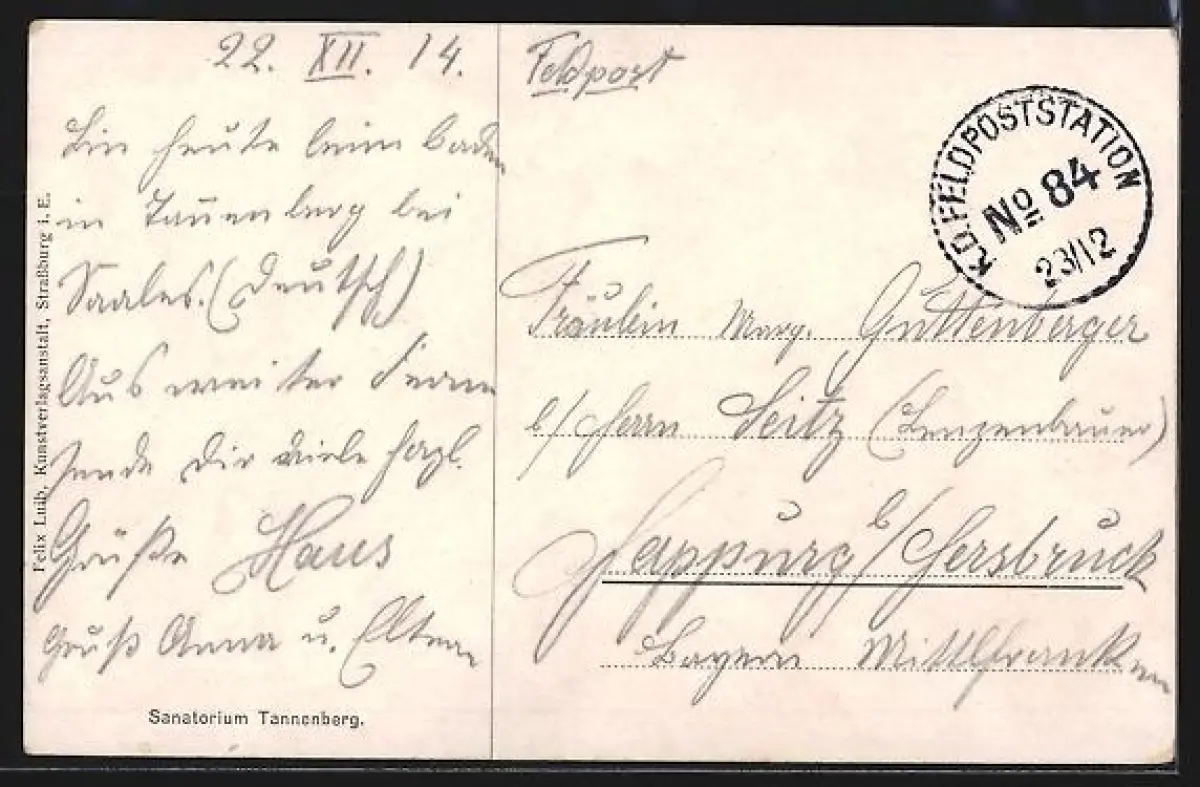 22. XII. 14.
Bin heute beim Baden
in Tannenberg bei
Saales. (Deutsch)
Aus weiter Ferne
sende Dir viele herzl.
Grüße Hans
Gruß Anna u. Eltern
Sanatorium Tannenberg.
Felix Luib, Kunstverlagsanstalt, Straßburg i. E.
Feldpost
K.D. FELDPOSTSTATION
No 84
23/12
Fräulein Marg. Guttenberger
b/ Herrn Seitz (Lenzenbauer)
Happurg b/ Hersbruck
Bayern Mittlfranken